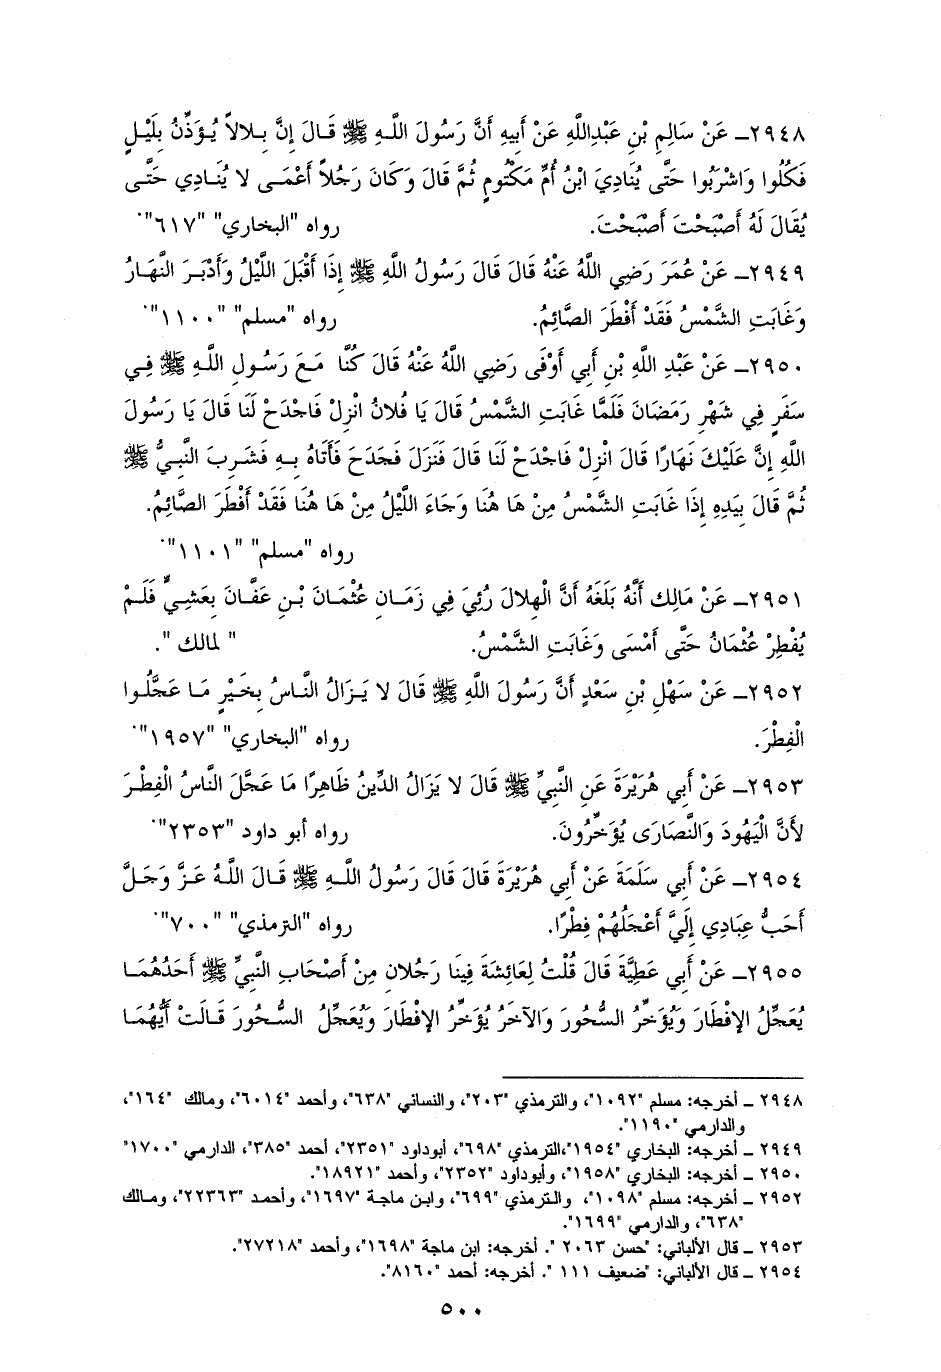 ٢٩٤٨ـ عَنْ سَالِمِ بْنِ عَبْدِاللَّهِ عَنْ أَبِيهِ أَنَّ رَسُولَ اللَّـهِ ﷺ قَـالَ إِنَّ بِـلالاً يُـؤَذِّنُ بِلَيْـلٍ
فَكُلُوا وَاشْرَبُوا حَتَّى يُنَادِيَ ابْنُ أُمِّ مَكْتُومٍ ثُمَّ قَالَ وَكَانَ رَجُلاً أَعْمَـى لا يُنَـادِي حَتَّـى
يُقَالَ لَهُ أَصْبَحْتَ أَصْبَحْتَ. رواه "البخاري" "٦١٧".
٢٩٤٩ـ عَنْ عُمَرَ رَضِي اللَّهُ عَنْهُ قَالَ قَالَ رَسُولُ اللَّهِ ﷺ إِذَا أَقْبَلَ اللَّيْلُ وَأَدْبَـرَ النَّهَـارُ
وَغَابَتِ الشَّمْسُ فَقَدْ أَفْطَرَ الصَّائِمُ. رواه "مسلم" "١١٠٠".
٢٩٥٠ـ عَنْ عَبْدِ اللَّهِ بْنِ أَبِي أَوْفَى رَضِي اللَّهُ عَنْهُ قَالَ كُنَّا مَـعَ رَسُـولِ اللَّـهِ ﷺ فِـي
سَفَرٍ فِي شَهْرِ رَمَضَانَ فَلَمَّا غَابَتِ الشَّمْسُ قَالَ يَا فُلانُ انْزِلْ فَاجْدَحْ لَنَا قَالَ يَا رَسُولَ
اللَّهِ إِنَّ عَلَيْكَ نَهَارًا قَالَ انْزِلْ فَاجْدَحْ لَنَا قَالَ فَنَزَلَ فَجَدَحَ فَأَتَاهُ بِـهِ فَشَرِبَ النَّبِيُّ ﷺ
ثُمَّ قَالَ بِيَدِهِ إِذَا غَابَتِ الشَّمْسُ مِنْ هَا هُنَا وَجَاءَ اللَّيْلُ مِنْ هَا هُنَا فَقَدْ أَفْطَرَ الصَّائِمُ.
رواه "مسلم" "١١٠١".
٢٩٥١ـ عَنْ مَالِك أَنَّهُ بَلَغَهُ أَنَّ الْهِلالَ رُئِيَ فِي زَمَـانِ عُثْمَـانَ بْـنِ عَفَّـانَ بِعَشِـيٍّ فَلَـمْ
يُفْطِرْ عُثْمَانُ حَتَّى أَمْسَى وَغَابَتِ الشَّمْسُ. " لمالك ".
٢٩٥٢ـ عَنْ سَهْلِ بْنِ سَعْدٍ أَنَّ رَسُولَ اللَّهِ ﷺ قَالَ لا يَـزَالُ النَّـاسُ بِخَـيْرٍ مَـا عَجَّلُـوا
الْفِطْرَ. رواه "البخاري" "١٩٥٧".
٢٩٥٣ـ عَنْ أَبِي هُرَيْرَةَ عَنِ النَّبِيِّ ﷺ قَالَ لا يَزَالُ الدِّينُ ظَاهِرًا مَا عَجَّلَ النَّاسُ الْفِطْـرَ
لأَنَّ الْيَهُودَ وَالنَّصَارَى يُؤَخِّرُونَ. رواه أبو داود "٢٣٥٣".
٢٩٥٤ـ عَنْ أَبِي سَلَمَةَ عَنْ أَبِي هُرَيْرَةَ قَالَ قَالَ رَسُولُ اللَّـهِ ﷺ قَـالَ اللَّـهُ عَـزَّ وَجَـلَّ
أَحَبُّ عِبَادِي إِلَيَّ أَعْجَلُهُمْ فِطْرًا. رواه "الترمذي" "٧٠٠".
٢٩٥٥ـ عَنْ أَبِي عَطِيَّةَ قَالَ قُلْتُ لِعَائِشَةَ فِينَا رَجُلانِ مِنْ أَصْحَابِ النَّبِيِّ ﷺ أَحَدُهُمَـا
يُعَجِّلُ الإِفْطَارَ وَيُؤَخِّرُ السُّحُورَ وَالآخَرُ يُؤَخِّرُ الإِفْطَارَ وَيُعَجِّلُ السُّحُورَ قَـالَتْ أَيُّهُمَـا
٢٩٤٨ ـ أخرجه: مسلم "١٠٩٢"، والترمذي "٢٠٣"، والنسائي "٦٣٨"، وأحمد "٦٠١٤"، ومالك "١٦٤"،
والدارمي "١١٩٠".
٢٩٤٩ ـ أخرجه: البخاري "١٩٥٤"،الترمذي "٦٩٨"، أبوداود "٢٣٥١"، أحمد "٣٨٥"، الدارمي "١٧٠٠"
٢٩٥٠ ـ أخرجه: البخاري "١٩٥٨"، وأبوداود "٢٣٥٢"، وأحمد "١٨٩٢١".
٢٩٥٢ ـ أخرجه: مسلم "١٠٩٨"، والترمذي "٦٩٩"، وابن ماجة "١٦٩٧"، وأحمد "٢٢٣٦٣"، ومالك
"٦٣٨"، والدارمي "١٦٩٩".
٢٩٥٣ ـ قال الألباني: "حسن ٢٠٦٣ ". أخرجه: ابن ماجة "١٦٩٨"، وأحمد "٢٧٢١٨".
٢٩٥٤ ـ قال الألباني: "ضعيف ١١١ ". أخرجه: أحمد "٨١٦٠".
٥٠٠